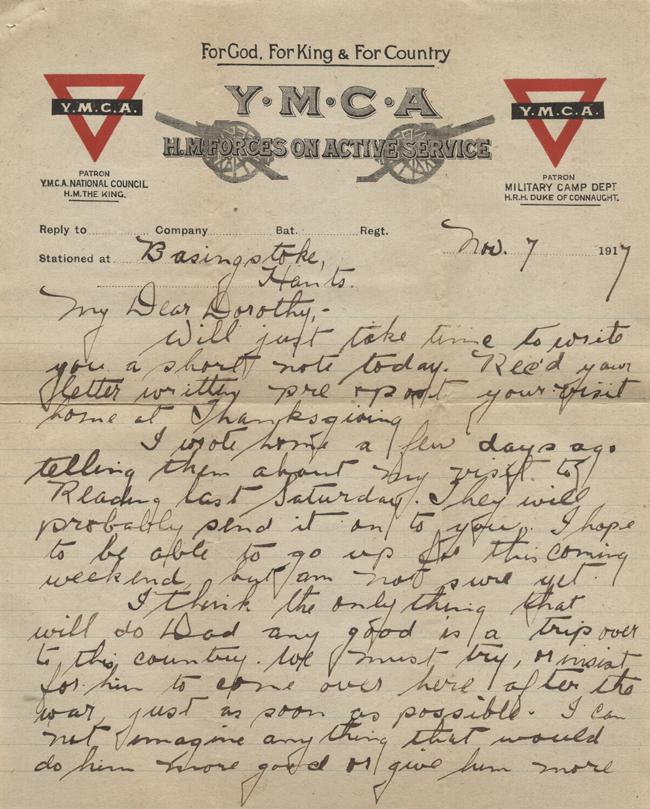 For God, For King & For Country
Y.M.C.A
H.M FORCES ON ACTIVE SERVICE
Y.M.C.A.
PATRON
Y.M.C.A. NATIONAL COUNCIL
H.M. THE KING.
Y.M.C.A.
PATRON
MILITARY CAMP DEPT
H.R.H. DUKE OF CONNAUGHT.
Reply to Company Bat. Regt.
Stationed at Basingstoke, Nov. 7 1917
Hants.
My Dear Dorothy,-
Will just take time to write
you a short note today. Rec'd your
letter written pre & post your visit
home at Thanksgiving
I wrote home a few days ago
telling them about my visit to
Reading last Saturday. They will
probably send it on to you. I hope
to be able to go up for this coming
weekend, but am not sure yet.
I think the only thing that
will do Dad any good is a trip over
to this country. We must try, or insist
for him to come over here after the
war, just as soon as possible. I can
not imagine anything that would
do him more good or give him more